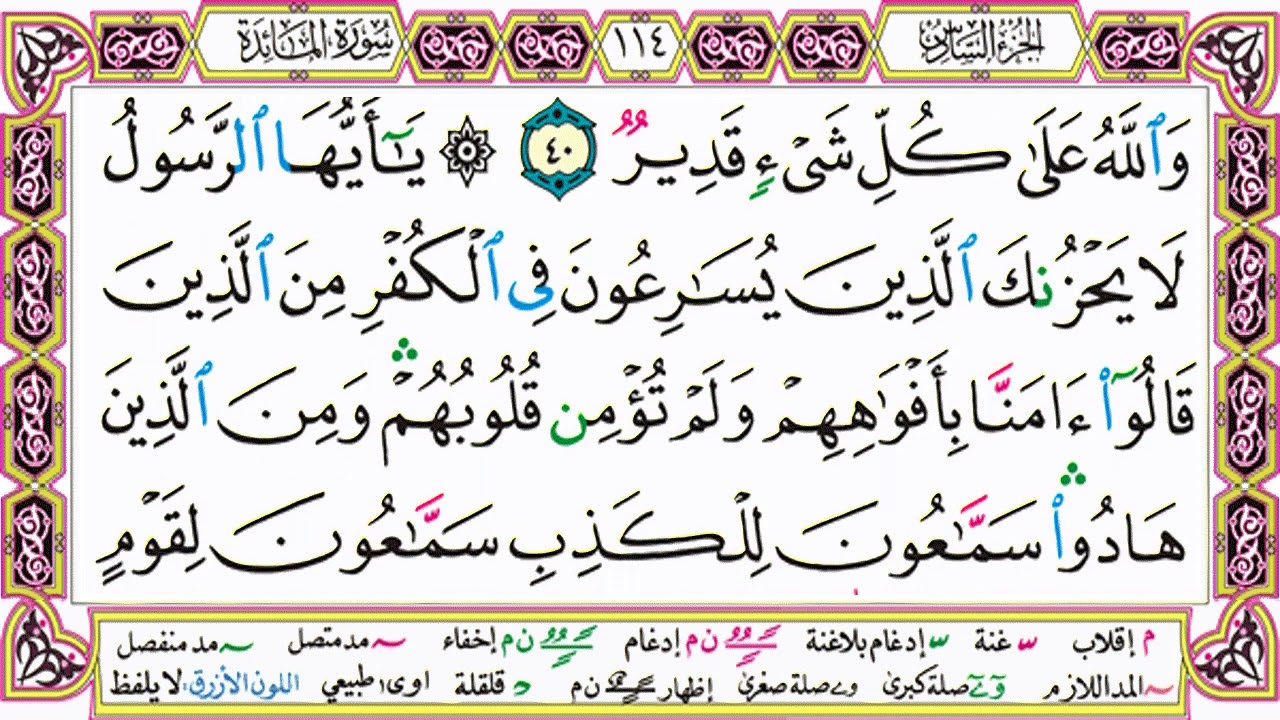 الجزء السادس ١١٤ سورة المائدة
وَٱللَّهُ عَلَىٰ كُلِّ شَىْءٍ قَدِيرٌ ٤٠ ۞ يَـٰٓأَيُّهَا ٱلرَّسُولُ
لَا يَحْزُنكَ ٱلَّذِينَ يُسَـٰرِعُونَ فِى ٱلْكُفْرِ مِنَ ٱلَّذِينَ
قَالُوٓا۟ ءَامَنَّا بِأَفْوَٰهِهِمْ وَلَمْ تُؤْمِن قُلُوبُهُمْ ۛ وَمِنَ ٱلَّذِينَ
هَادُوا۟ ۛ سَمَّـٰعُونَ لِلْكَذِبِ سَمَّـٰعُونَ لِقَوْمٍ
م إقلاب ـّ غنة ـّ إدغام بلاغنة ن م إدغام ن م إخفاء ~ مد متصل ~ مد منفصل
~ المد اللازم و ے صلة كبرى و ے صلة صغرى إظهار ن م د قلقلة اوى طبيعي اللون الأزرق: لا يلفظ